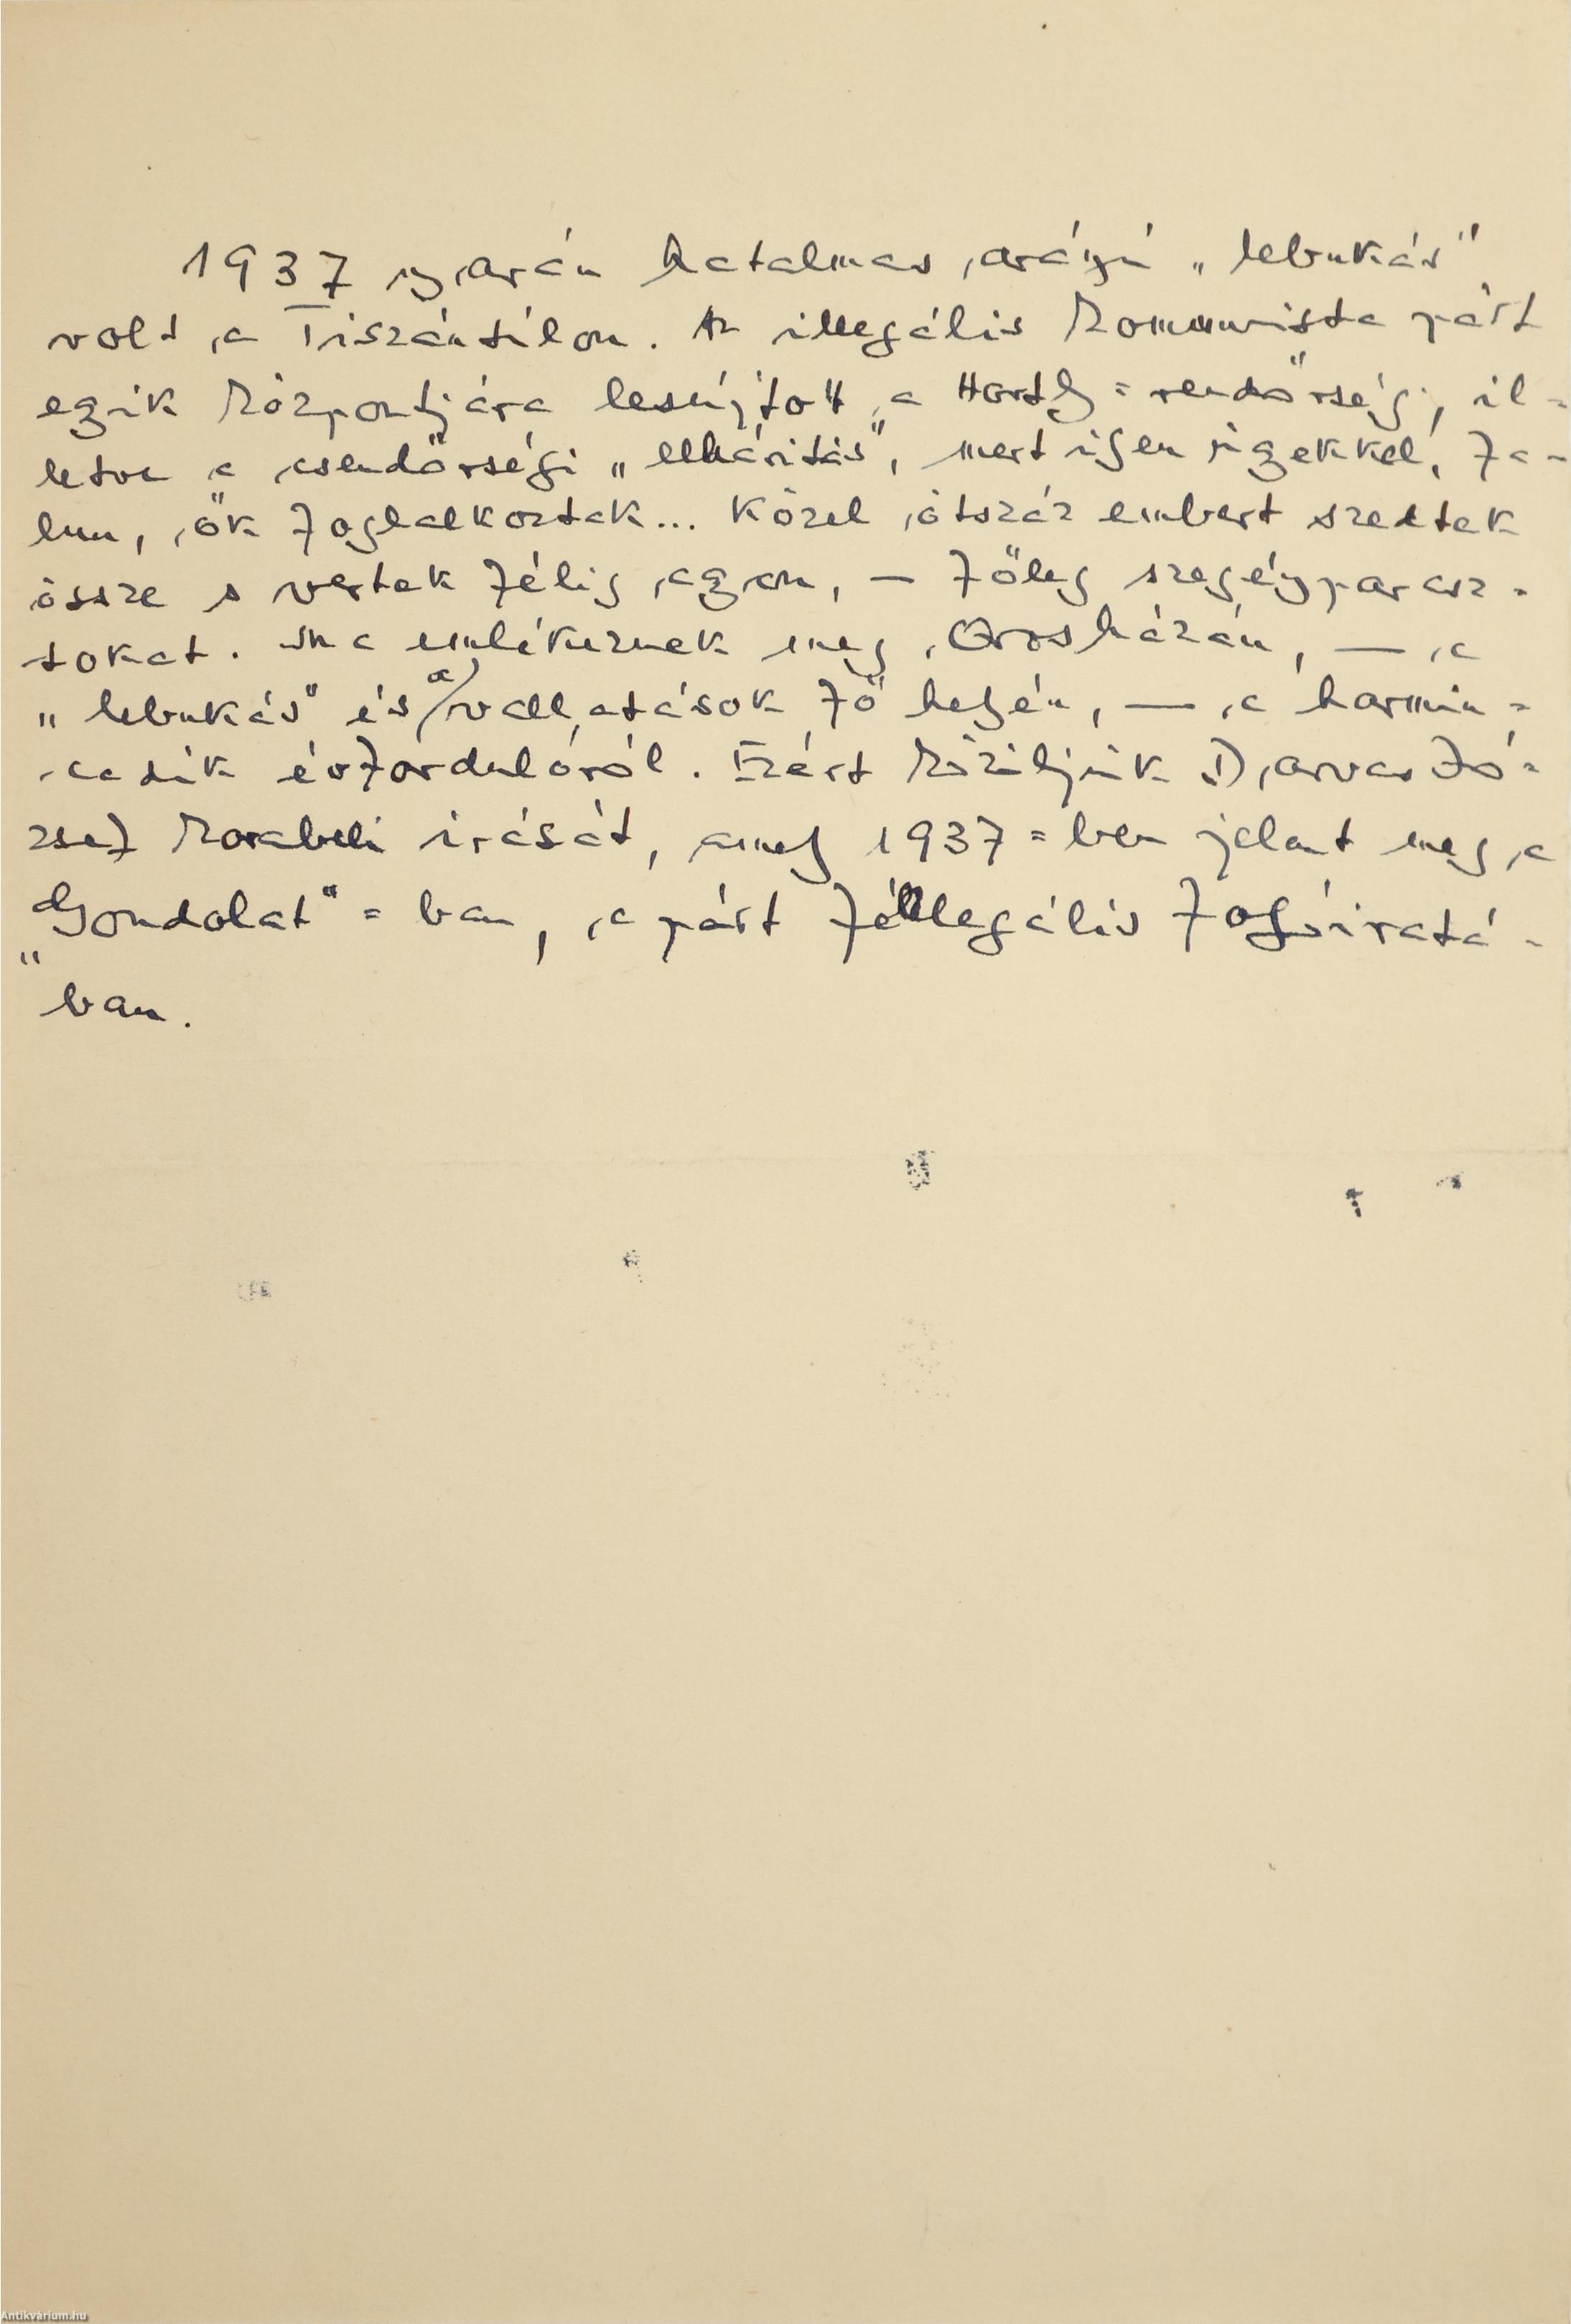 1937 nyarán hatalmas arányú „lebukás"
volt a Tiszántúlon. Az illegális Kommunista párt
egyik központjára lesújtott a Horthy=rendőrség, il=
letve a csendőrségi „elhárítás", mert ilyen ügyekkel, fa=
lun, ők foglalkoztak... Közel ötszáz embert szedtek
össze s vertek félig agyon, — főleg szegényparasz=
tokat. Ma emlékeznek meg Orosházán, — a
„lebukás" és a vallatások fő helyén, — a harmin=
cadik évfordulóról. Ezért közöljük Darvas Jó=
zsef korabeli írását, amely 1937=ben jelent meg a
„Gondolat"=ban, a párt féllegális folyóiratá=
ban.
Antikvárium.hu